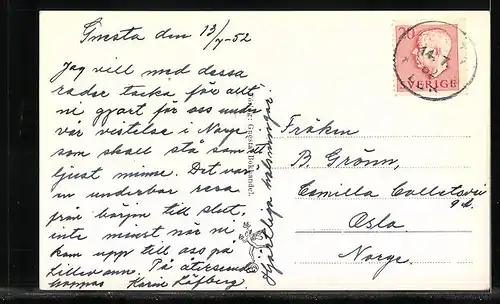 Gnesta den 13/7-52
Jag vill med dessa
rader tacka för allt
ni gjort för oss under
vår vistelse i Norge
som skall stå som ett
ljust minne. Det var
en underbar resa
från början till slut,
inte minst när ni
kom upp till oss på
På återseende
hoppas Karin Löfberg.
Hjärtliga hälsningar.
Gnesta Bokhandel.
20
SVERIGE
14.7
Fröken
B. Grönn,
Camilla Colletsvei
Oslo
Norge.